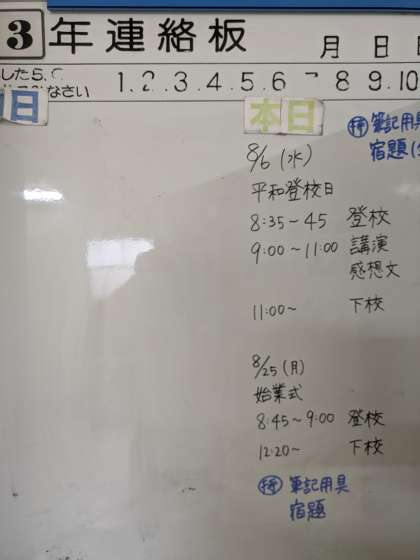 3年連絡板 月 日
したら
なさい 1.2.3.4.5.6 7 8 9.10
日 本日
持 筆記用具
宿題
8/6 (水)
平和登校日
8:35～45 登校
9:00～11:00 講演
感想文
11:00～ 下校
8/25 (月)
始業式
8:45～9:00 登校
12:20～ 下校
持 筆記用具
宿題